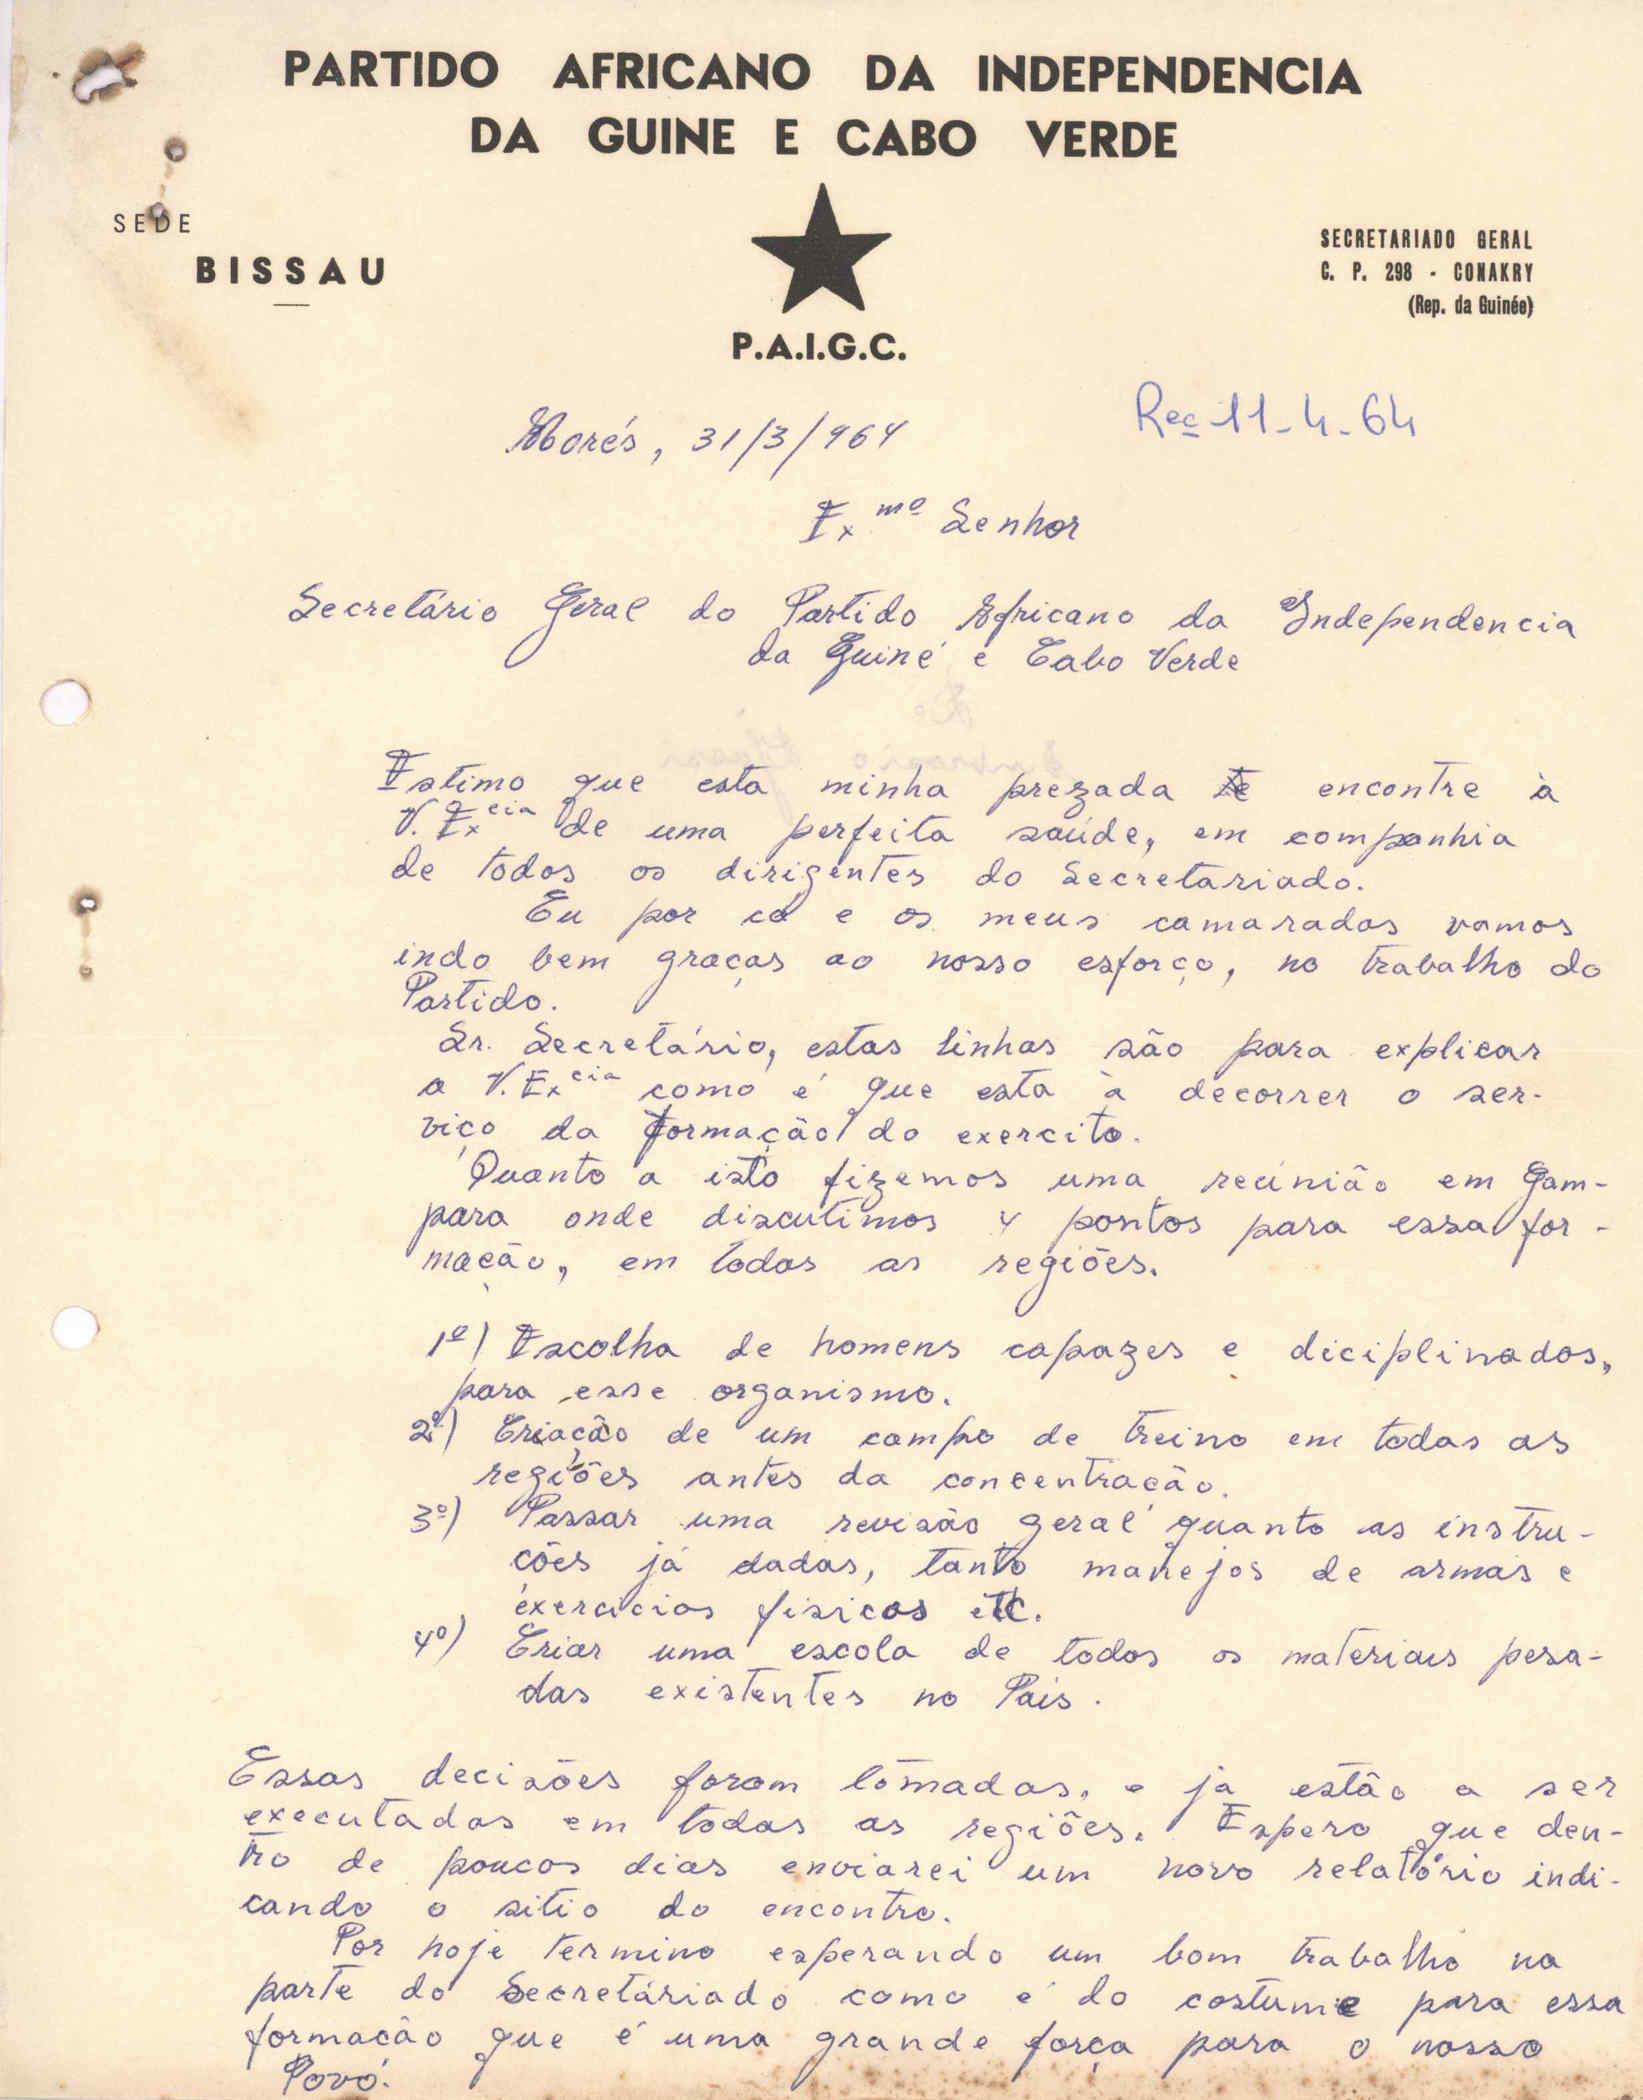 PARTIDO AFRICANO DA INDEPENDENCIA
DA GUINE E CABO VERDE
SEDE
BISSAU
SECRETARIADO GERAL
C. P. 298 - CONAKRY
(Rep. da Guinée)
P.A.I.G.C.
Rec 11-4-64
Morés, 31/3/964
Exmo Senhor
Secretário Geral do Partido Africano da Independencia
da Guiné e Cabo Verde
Estimo que esta minha prezada te encontre à
V. Excia de uma perfeita saúde, em companhia
de todos os dirigentes do Secretariado.
Eu por cá e os meus camaradas vamos
indo bem graças ao nosso esforço, no trabalho do
Partido.
Sr. Secretário, estas linhas são para explicar
a V. Excia como é que esta à decorrer o ser-
viço da formação do exercito.
Quanto a isto fizemos uma reúnião em Gam-
para onde discutimos 4 pontos para essa for-
mação, em todas as regiões.
1º) Escolha de homens capazes e diciplinados,
para esse organismo.
2º) Criação de um campo de treino em todas as
regiões antes da concentração.
3º) Passar uma revisão geral quanto as instru-
ções já dadas, tanto manejos de armas e
exercicios fisicos etc.
4º) Criar uma escola de todos os materiais pesa-
das existentes no Pais.
Essas decisões foram tomadas, e já estão a ser
executadas em todas as regiões. Espero que den-
tro de poucos dias enviarei um novo relatório indi-
cando o sitio do encontro.
Por hoje termino esperando um bom trabalho na
parte do Secretáriado como é do costume para essa
formação que é uma grande força para o nosso
Povo.